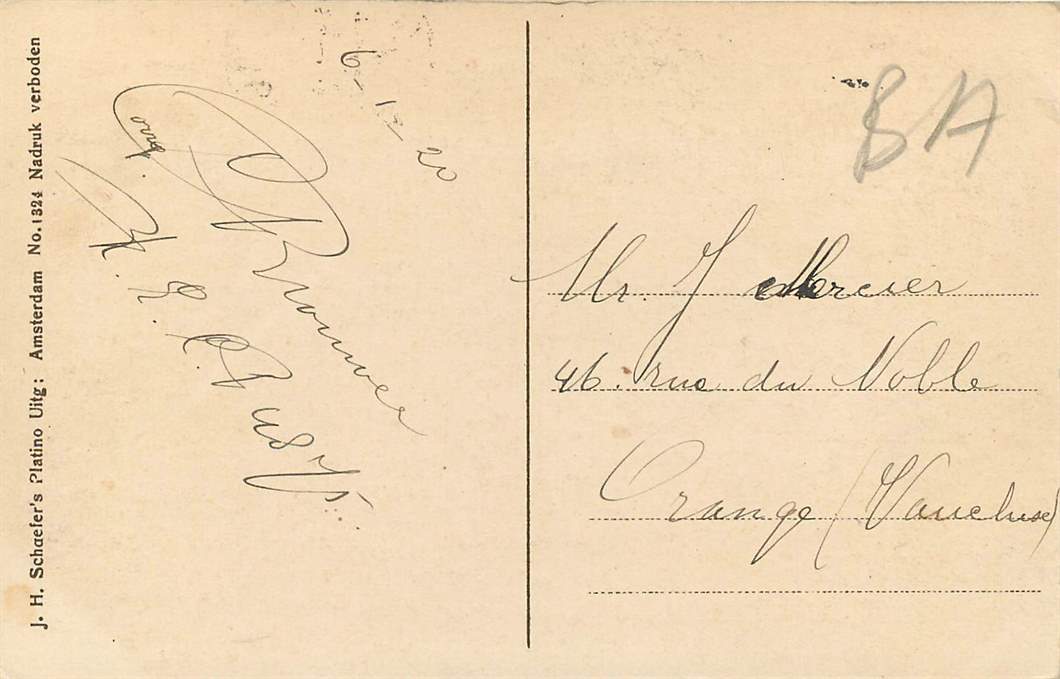 J. H. Schaefer's Platino Uitg: Amsterdam No. 1324 Nadruk verboden
6-12-20
Brouwer
BA
Mr. J Mercier
46. rue du Noble
Orange (Vaucluse)